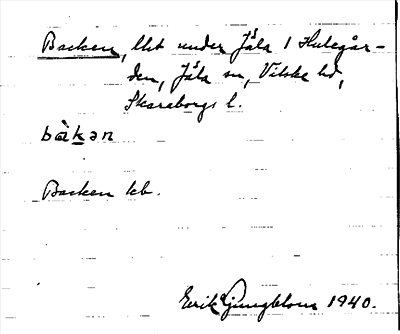 Backen, lht under Jäla 1 Hulegår-
den, Jäla sn, Vilske hd,
Skaraborgs l.
bàkən
Backen kb.
Erik Ljungblom 1940.